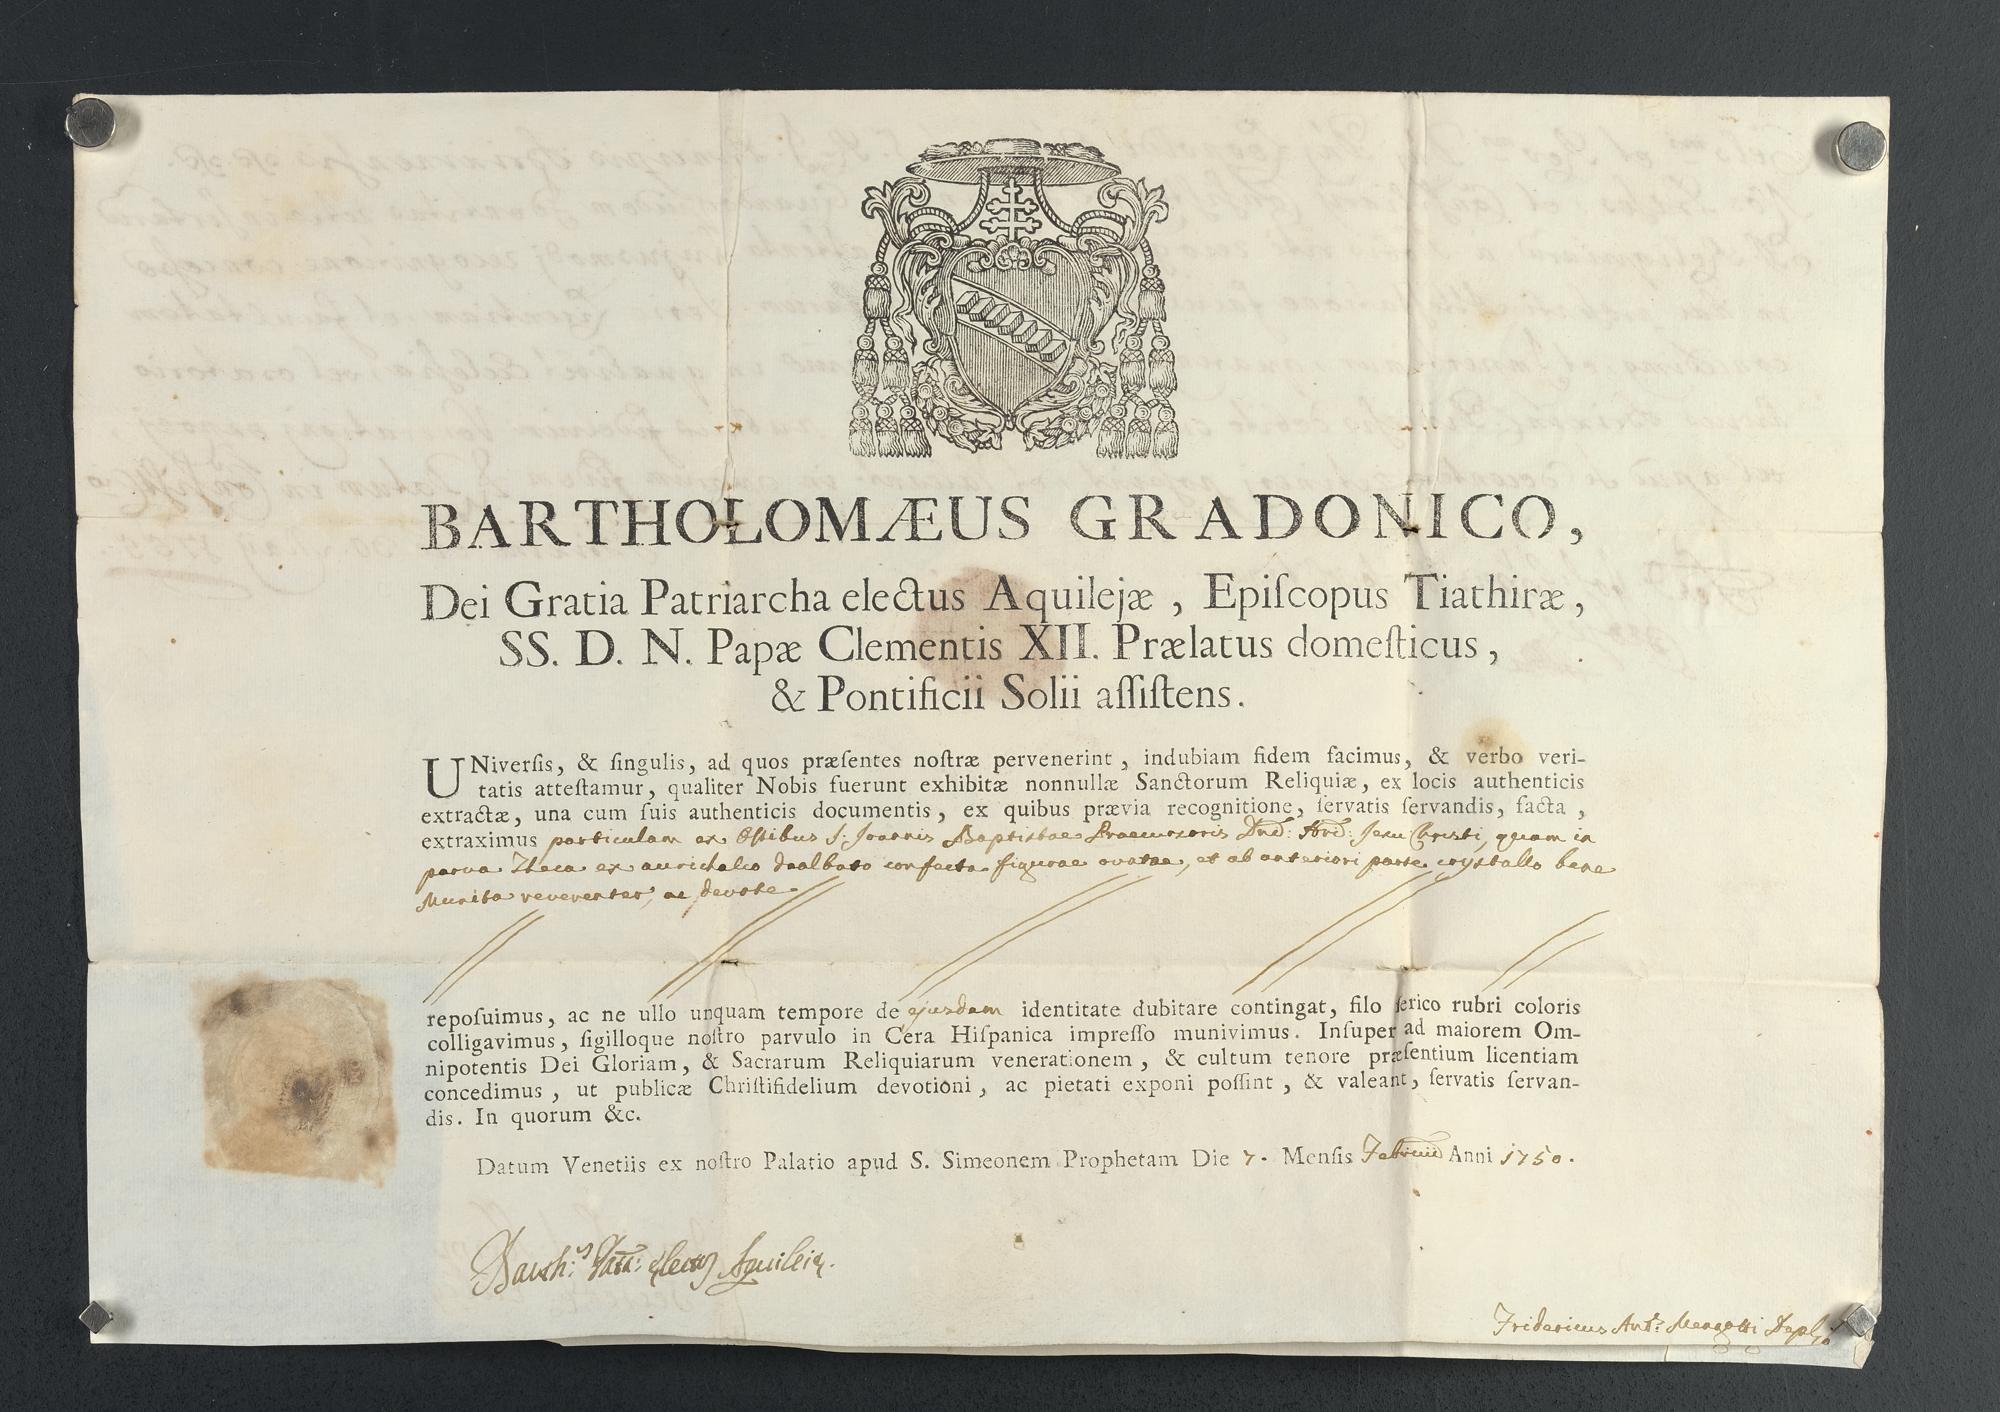 BARTHOLOMÆUS GRADONICO,
Dei Gratia Patriarcha electus Aquilejæ, Epiſcopus Tiathiræ,
SS. D. N. Papæ Clementis XII. Prælatus domeſticus,
& Pontificii Solii aſſiſtens.
UNiverſis, & ſingulis, ad quos præſentes noſtræ pervenerint, indubiam fidem facimus, & verbo veri-
tatis atteſtamur, qualiter Nobis fuerunt exhibitæ nonnullæ Sanctorum Reliquiæ, ex locis authenticis
extractæ, una cum ſuis authenticis documentis, ex quibus prævia recognitione, ſervatis ſervandis, facta,
extraximus particulam ex Oſſibus S: Joannis Baptistae Praecursoris Dnĩ: Nrĩ: Jesu Christi, quam in
parva Theca ex aurichalco dealbato confecta figurae ovatae, et ab anteriori parte crystallo bene
Munita reverenter, ac devote
repoſuimus, ac ne ullo unquam tempore de ejusdem identitate dubitare contingat, filo ſerico rubri coloris
colligavimus, ſigilloque noſtro parvulo in Cera Hiſpanica impreſſo munivimus. Inſuper ad maiorem Om-
nipotentis Dei Gloriam, & Sacrarum Reliquiarum venerationem, & cultum tenore præſentium licentiam
concedimus, ut publicæ Chriſtifidelium devotioni, ac pietati exponi poſſint, & valeant, ſervatis ſervan-
dis. In quorum &c.
Datum Venetiis ex noſtro Palatio apud S. Simeonem Prophetam Die 7. Menſis Februarii Anni 1750.
Barth:s Patr: electus Aquileiæ.
Fridericus Ant:s